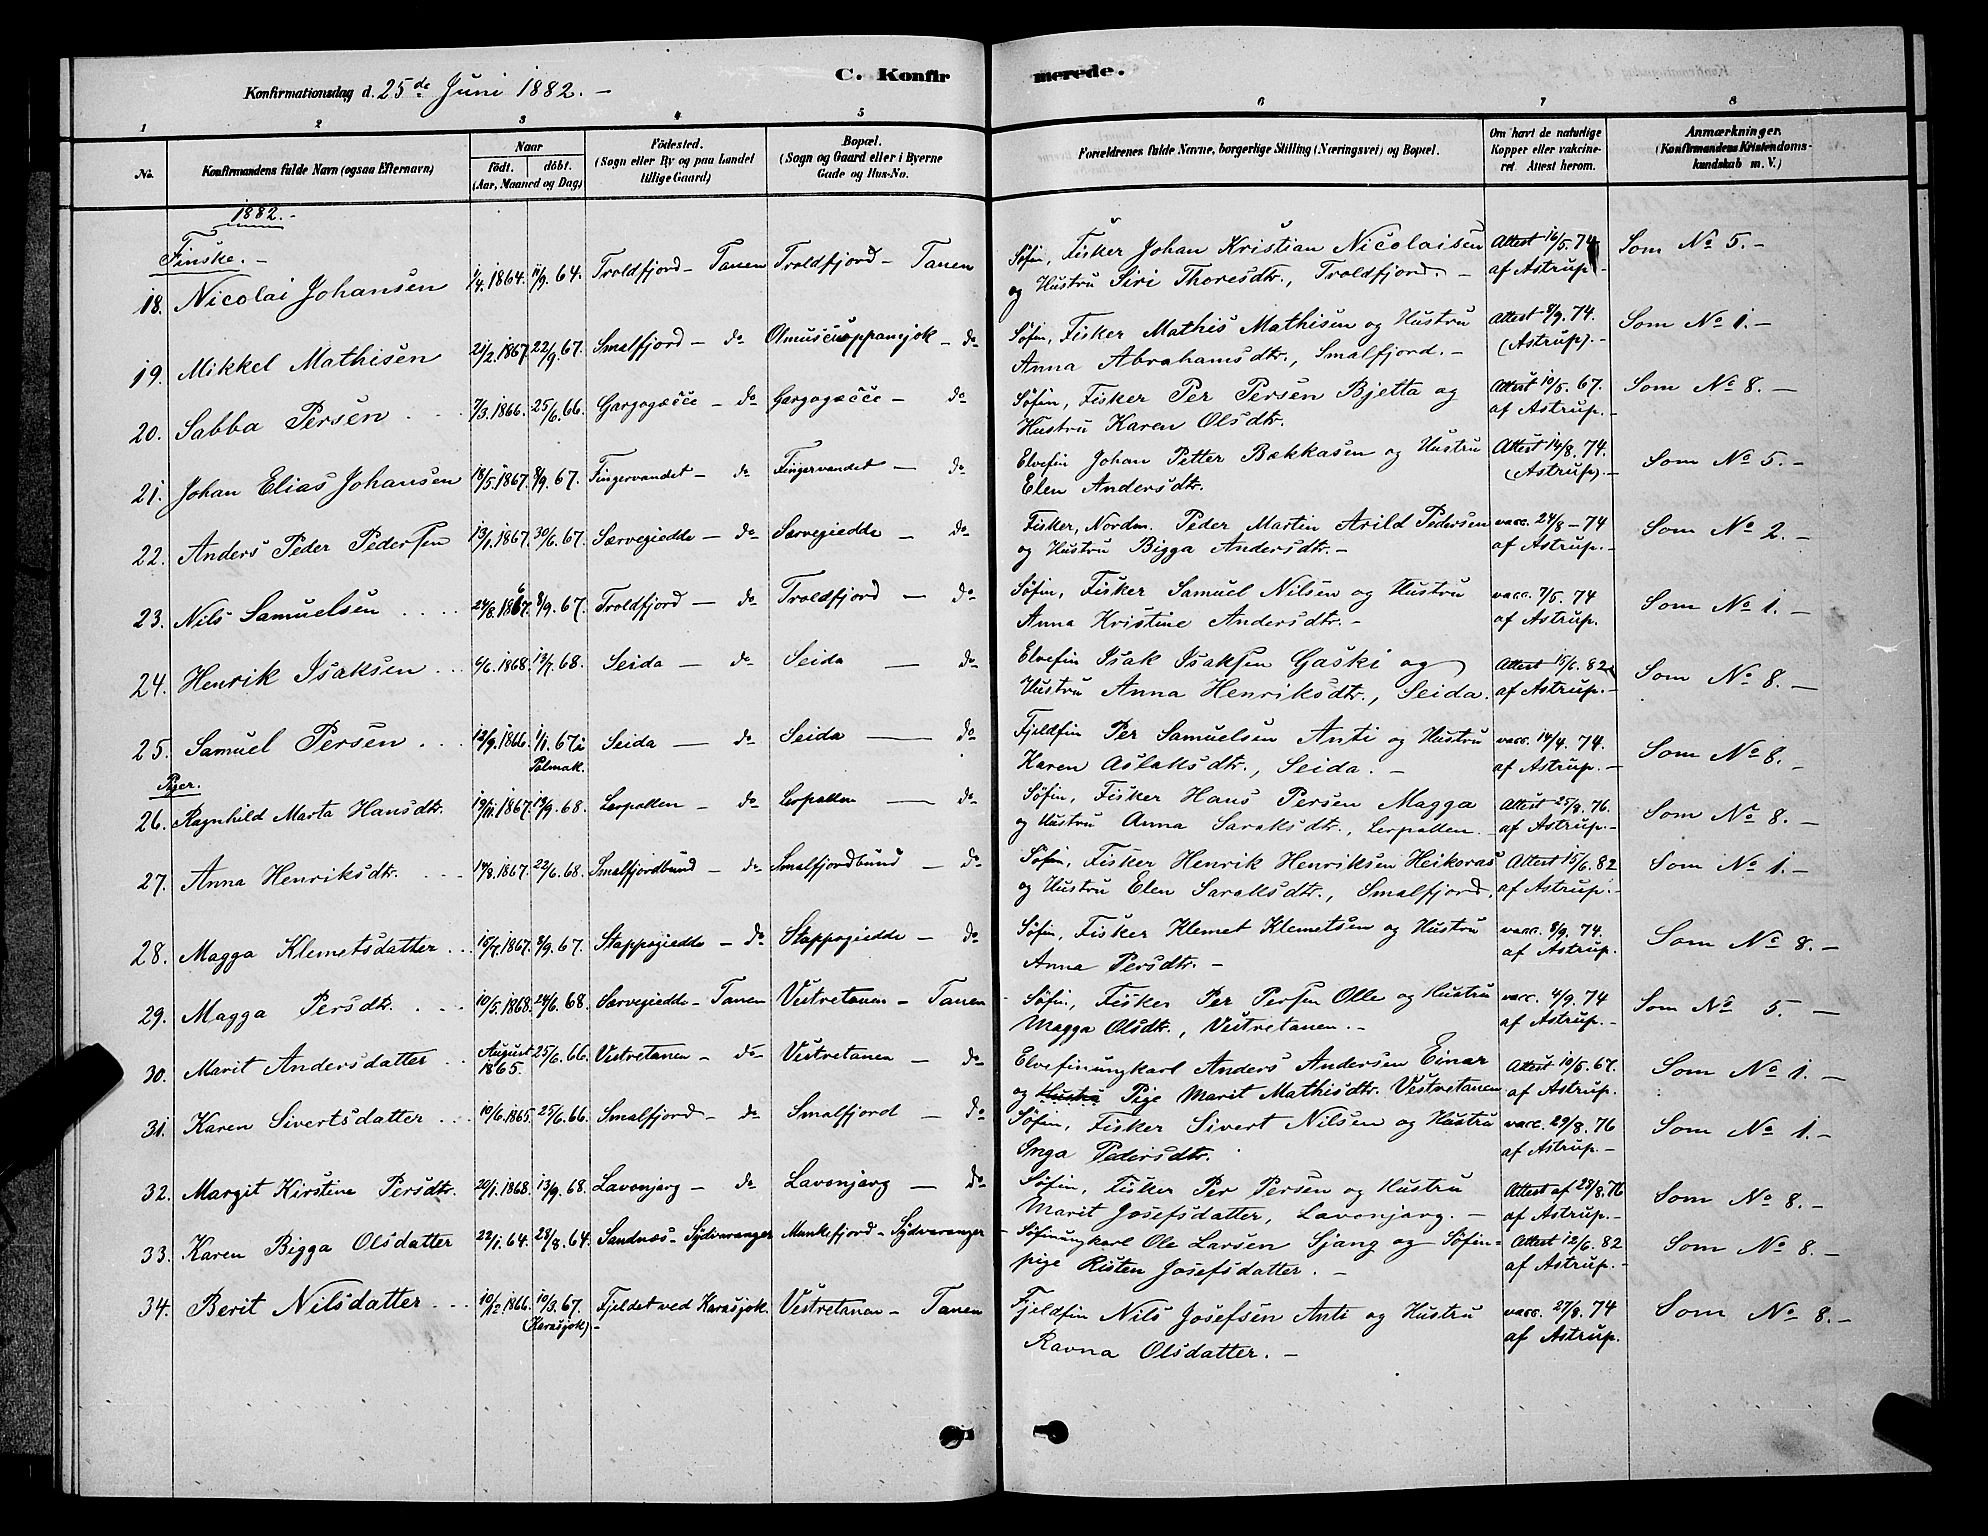 C. Konfirmerede.
Konfirmationsdag d. 25de Juni 1882. –
1 2 3 4 5 6 7 8
No. Konfirmandens fulde Navn (ogsaa Efternavn) Naar født. døbt. (Aar, Maaned og Dag) Fødested. (Sogn eller By og paa Landet tillige Gaard) Bopæl. (Sogn og Gaard eller i Byerne Gade og Hus-No. Forældrenes fulde Navne, borgerlige Stilling (Næringsvei) og Bopæl. Om havt de naturlige Kopper eller vakcineret. Attest herom. Anmærkninger. (Konfirmandens Kristendomskundskab m. V.)
1882. –
Finske. –
18. Nicolai Johansen 1/4. 1864. 11/9. 64. Troldfjord – Tanen Troldfjord – Tanen Søfin, Fisker Johan Kristian Nicolaisen Attest 16/5. 74 Som No 5. –
og Hustru Siri Thoresdtr., Troldfjord. – af Astrup –
19. Mikkel Mathisen 21/2. 1867. 22/9. 67. Smalfjord – do Olmuscuoppamjok – do Søfin, Fisker Mathis Mathisen og Hustru Attest 8/9. 74. Som No 1. –
Anna Abrahamsdtr., Smalfjord. – (Astrup). –
20. Sabba Persen 7/3. 1866. 25/6. 66. Gargogæčče – do Gargogæčče – do Søfin, Fisker Per Persen Bjetta og Attest 10/5. 67. Som No 8. –
Hustru Karen Olsdtr. af Astrup. –
21. Johan Elias Johansen 18/5. 1867. 8/9. 67. Fingervandet – do Fingervandet – do Elvefin Johan Petter Bækkasen og Hustru Attest 14/8. 74. Som No 5. –
Elen Andersdtr. (Astrup). –
22. Anders Peder Pedersen 13/1. 1867. 30/6. 67. Særvegiedde – do Særvegiedde – do Fisker, Nordm. Peder Martin Arild Pedersen vacc. 24/8 – 74 Som No 2. –
og Hustru Bigga Andersdtr. – af Astrup. –
23. Nils Samuelsen 24/8. 1866. 8/9. 67. Troldfjord – do Troldfjord – do Søfin, Fisker Samuel Nilsen og Hustru vacc. 7/5. 74 Som No 1. –
Anna Kristine Andersdtr. – af Astrup.
24. Henrik Isaksen 6/6. 1868. 13/7. 68. Seida – do Seida – do Elvefin Isak Isaksen Gaski og Attest 15/6. 82 Som No 8. –
Hustru Anna Henriksdtr., Seida. af Astrup. –
25. Samuel Persen 12/9. 1866. 1/1. 67 i Seida – do Seida – do Fjeldfin Per Samuelsen Anti og Hustru vacc. 14/4. 74. Som No 8. –
Polmak. Karen Aslaksdtr., Seida. – af Astrup. –
Piger.
26. Ragnhild Marta Hansdtr. 19/11. 1867. 13/9. 68. Lerpollen – do Lerpollen – do Søfin, Fisker Hans Persen Magga Attest 25/8. 76 Som No 8. –
og Hustru Anna Saraksdtr., Lerpollen. af Astrup. –
27. Anna Henriksdtr. 14/8. 1867. 22/6. 68. Smalfjordbund – do Smalfjordbund – do Søfin, Fisker Henrik Henriksen Heikoras Attest 15/6. 82 Som No 1. –
og Hustru Elen Saraksdtr., Smalfjord. af Astrup. –
28. Magga Klemetsdatter 15/7. 1867. 8/9. 67. Stappogiedde – do Stappogiedde – do Søfin, Fisker Klemet Klemetsen og Hustru vacc. 8/9. 74. Som No 8. –
Anna Persdtr. – af Astrup.
29. Magga Persdtr. 10/5. 1868. 24/6. 68. Særvegiedde – Tanen Vestretanen – Tanen Søfin, Fisker Per Persen Olle og Hustru vacc. 4/9. 74 Som No 5. –
Magga Olsdtr., Vestretanen. – af Astrup. –
30. Marit Andersdatter August 1865. 25/6. 66. Vestretanen – do Vestretanen – do Elvefinungkarl Anders Andersen Einar Attest 10/5. 67. Som No 1. –
og Hustru Pige Marit Mathisdtr. Vestretanen af Astrup.
31. Karen Sivertsdatter 10/6. 1865. 25/6. 66. Smalfjord – do Smalfjord – do Søfin, Fisker Sivert Nilsen og Hustru vacc. 29/8. 76 Som No 1. –
Inga Pedersdtr. af Astrup. –
32. Margit Kirstine Persdtr. 20/1. 1868. 13/9. 68. Lavonjarg – do Lavonjarg – do Søfin, Fisker Per Persen og Hustru Attest af 28/8. 76 Som No 8. –
Marit Josefsdatter, Lavonjarg. – af Astrup. –
33. Karen Bigga Olsdatter 22/1. 64. 28/8. 64. Sandnæs – Sydvaranger Munkefjord – Sydvaranger Søfinungkarl Ole Larsen Sjang og Søfin= Attest 12/6. 82 Som No 8. –
pige Risten Josefsdatter. – af Astrup. –
34. Berit Nilsdatter 10/12. 1866. 10/3. 67. Fjeldet ved Karasjok. Vestretanen – Tanen Fjeldfin Nils Josefsen Anti og Hustru vacc. 27/8. 74 Som No 8. –
(Karasjok) – Ravna Olsdatter. – af Astrup.